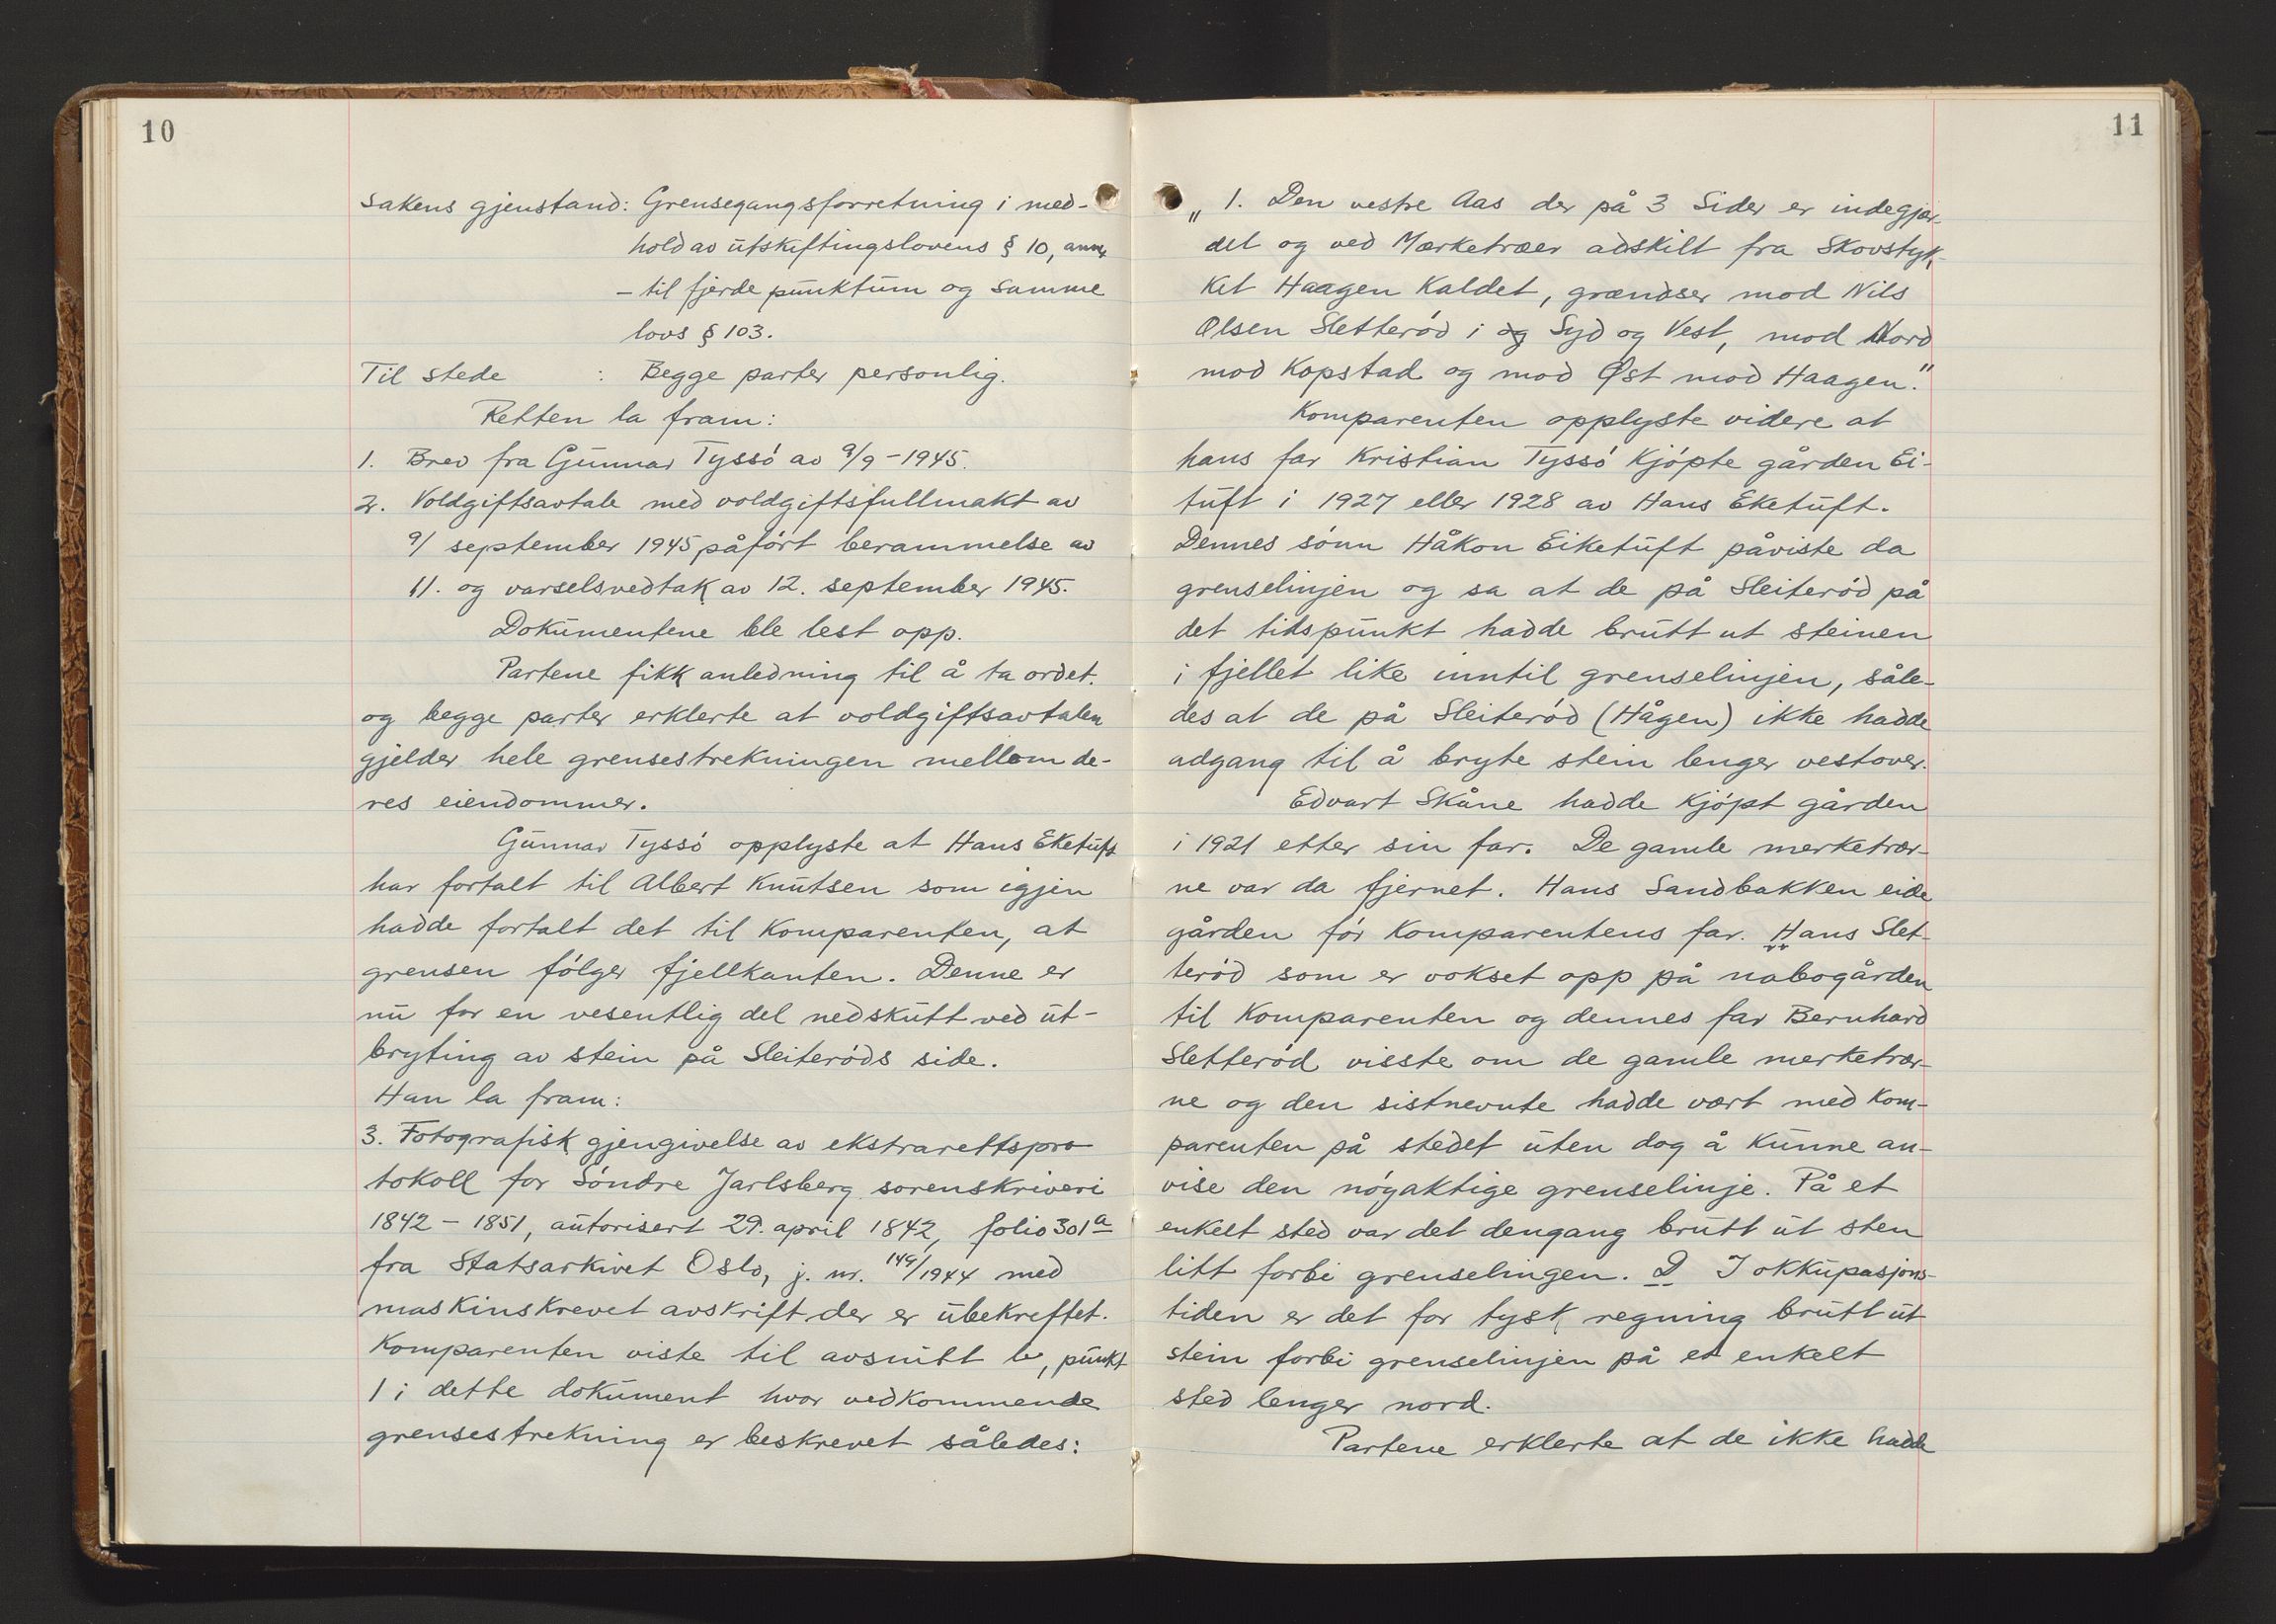 10
Sakens gjenstand: Grensegangsforretning i med-
hold av utskiftingslovens § 10, annet
- til fjerde punktum og samme
lovs § 103.
Til stede : Begge parter personlig.
Retten la fram:
1. Brev fra Gunnar Tyssó av 9/9-1945.
2. Voldgiftsavtale med voldgiftsfullmakt av
9/ september 1945 påfórt berammelse av
11. og varselsvedtak av 12. september 1945.
Dokumentene ble lest opp.
Partene fikk anledning til å ta ordet.
og begge parter erklerte at voldgiftsavtalen
gjelder hele grensestrekningen mellom de-
res eiendommer.
Gunnar Tyssó opplyste at Hans Eketuft
har fortalt til Albert Knutsen som igjen
hadde fortalt det til Komparenten, at
grensen fólger fjellkanten. Denne er
nu for en vesentlig del nedskutt ved ut-
bryting av stein på Sleiteróds side.
Han la fram:
3. Fotografisk gjengivelse av ekstrarettspro
tokoll for Sóndre Jarlsberg sorenskriveri
1842 - 1851, autorisert 29. april 1842, folio 301a
fra Statsarkivet Oslo, j. nr. 149/1944 med
maskinskrevet avskrift der er ubekreftet.
Komparenten viste til avsnitt b, punkt
1 i dette dokument hvor vedkommende
grensestrekning er beskrevet således:
11
„ 1. Den vestre Aas der på 3 Sider er indegjær-
det og ved Mærketræer adskilt fra Skovstyk-
ket Haagen Kaldet, grændser mod Nils
Olsen Sletteród i og Syd og Vest, mod Nord
mod Kopstad og mod Øst mod Haagen."
Komparenten opplyste videre at
hans far Kristian Tyssó Kjópte gården Ei-
tuft i 1927 eller 1928 av Hans Eketuft.
Dennes sónn Håkon Eiketuft påviste da
grenselinjen og sa at de på Sleiteród på
det tidspunkt hadde brutt ut steinen
i fjellet like inntil grenselinjen, såle-
des at de på Sleiteród (Hågen) ikke hadde
adgang til å bryte stein lenger vestover.
Edvart Skåne hadde Kjópt gården
i 1921 etter sin far. De gamle merketrær-
ne var da fjernet. Hans Sandbakken eide
gården fór Komparentens far. Hans Slet-
teród som er vokset opp på nabogården
til Komparenten og dennes far Bernhard
Sletteród visste om de gamle merketrær-
ne og den sistnevnte hadde vært med Kom-
parenten på stedet uten dog å Kunne an-
vise den nóyaktige grenselinje. På et
enkelt sted var det dengang brutt ut sten
litt forbi grenselingen. D I okkupasjons-
tiden er det for tysk regning brutt ut
stein forbi grenselinjen på et enkelt
sted lenger nord.
Partene erklerte at de ikke hadde